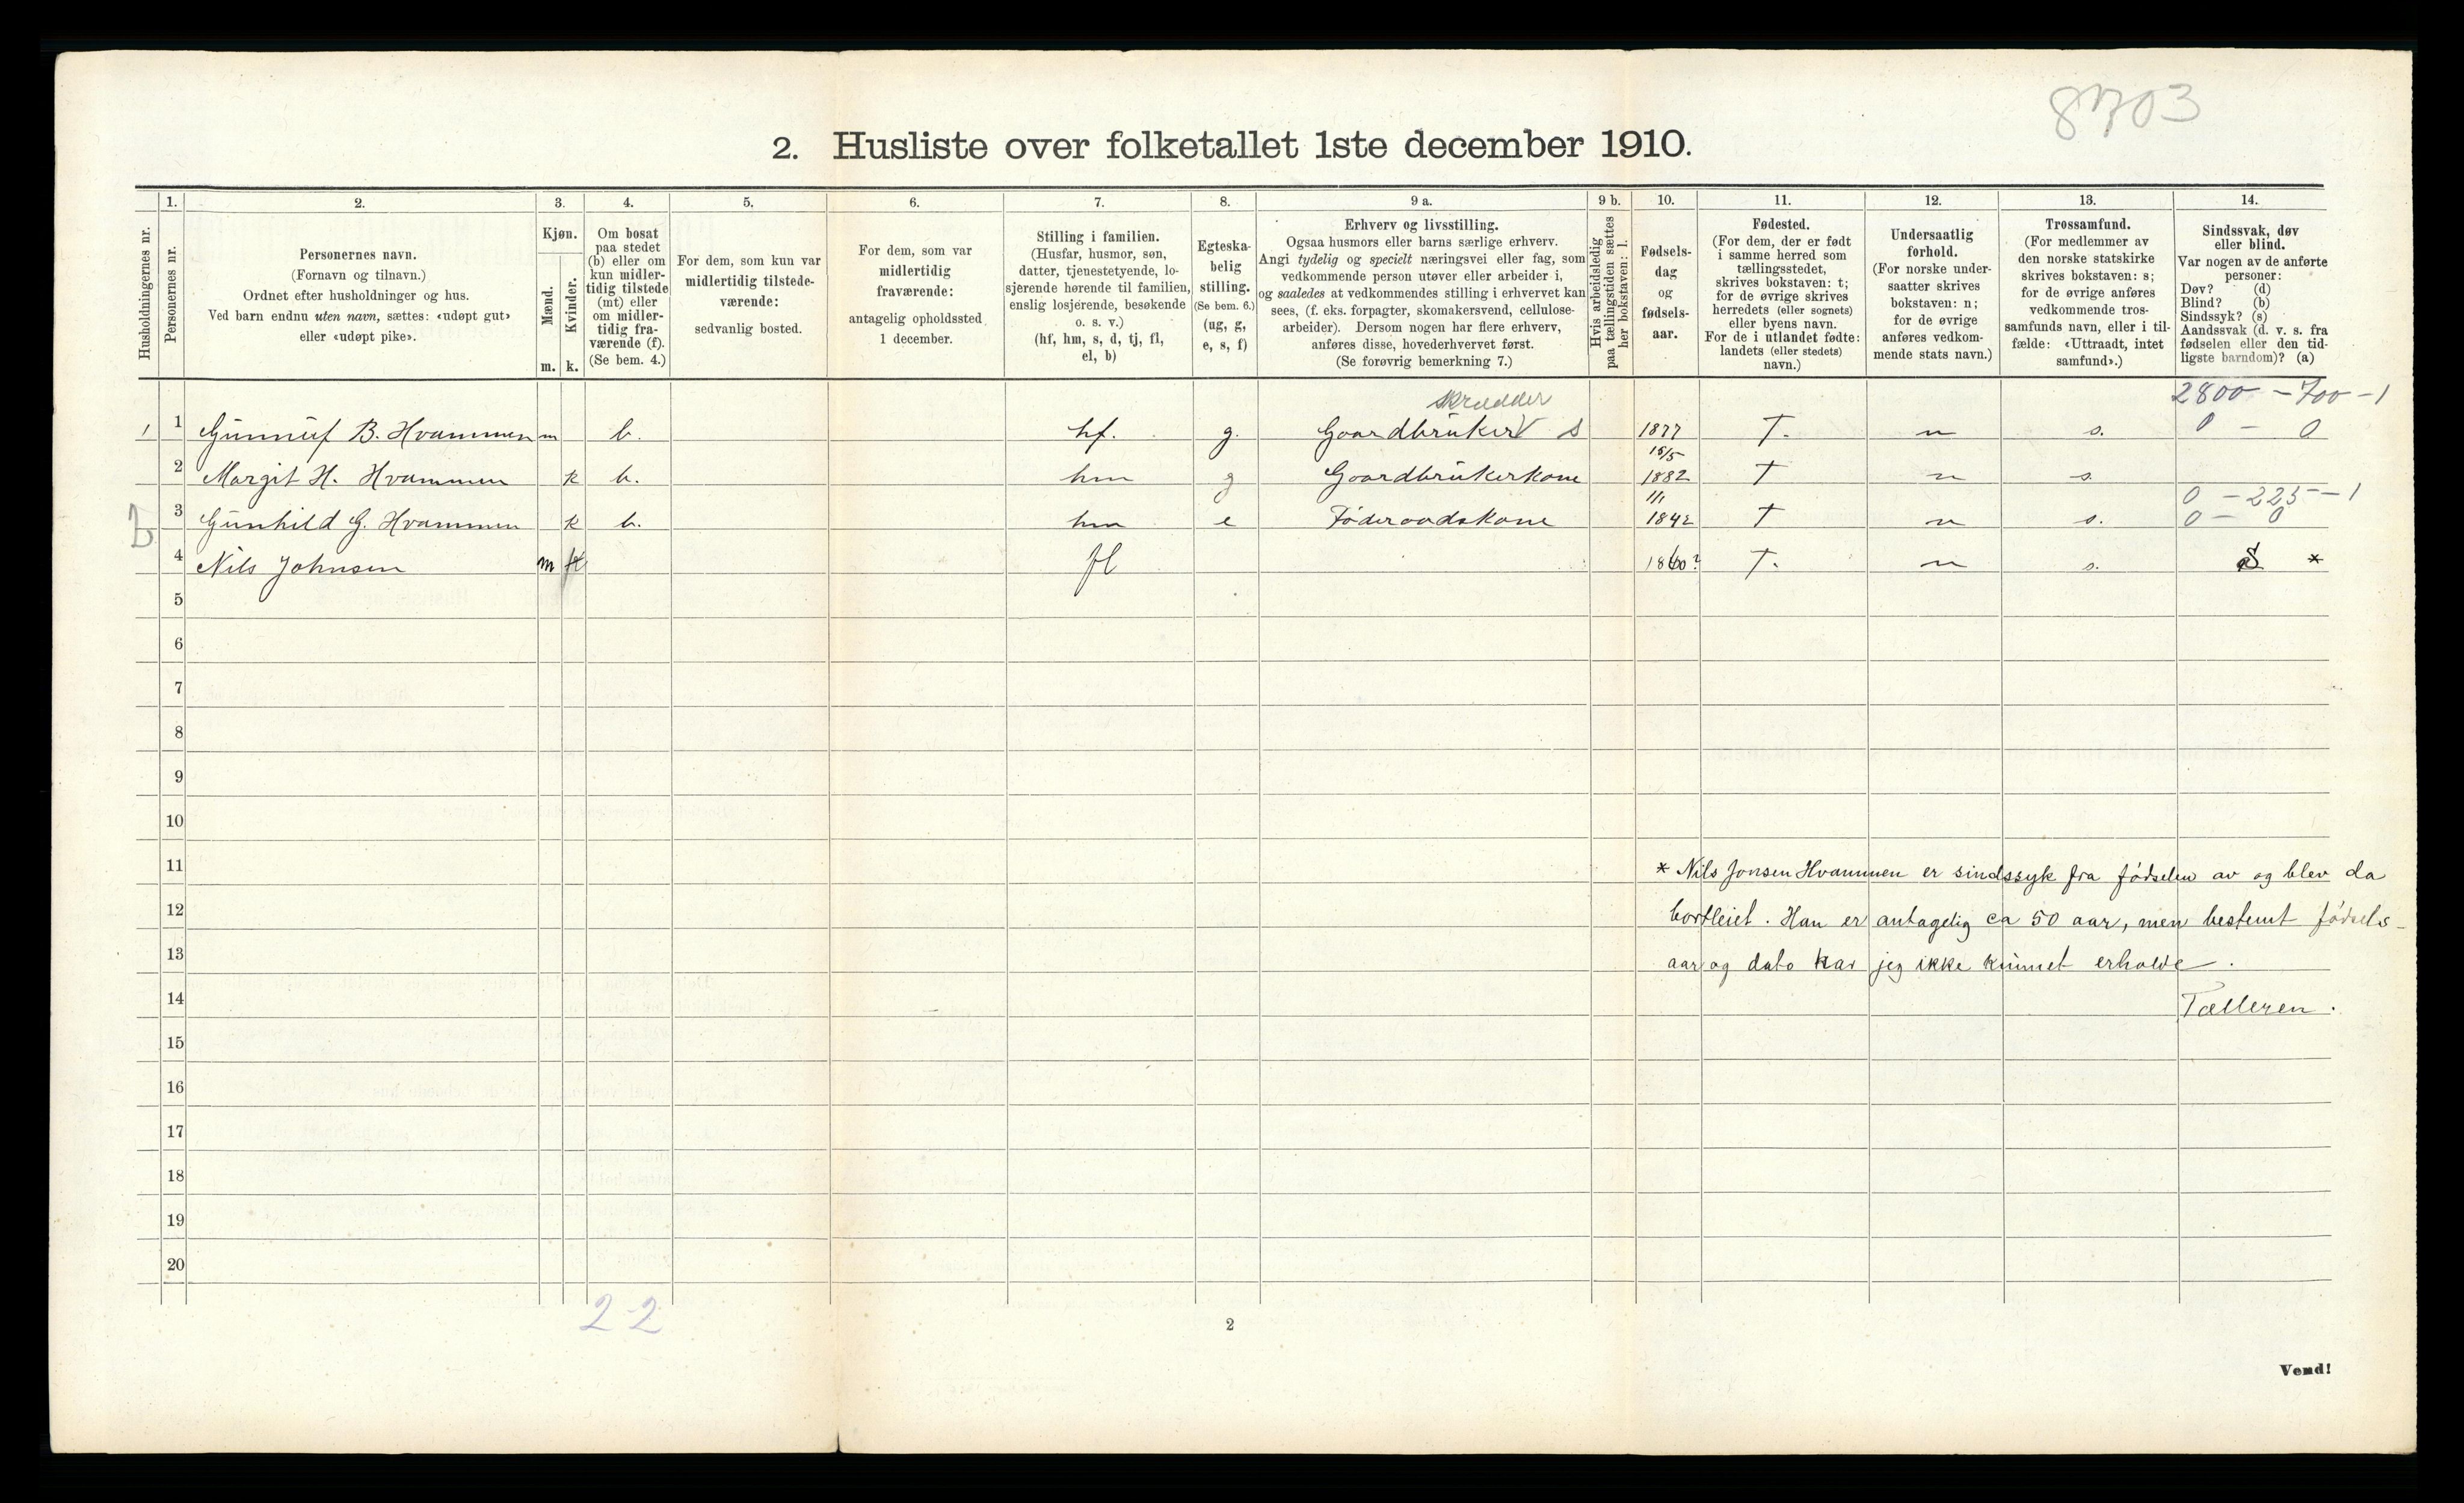 8703
2. Husliste over folketallet 1ste december 1910.
Husholdningernes nr.
1.
Personernes nr.
2.
Personernes navn.
(Fornavn og tilnavn.)
Ordnet efter husholdninger og hus.
Ved barn endnu uten navn, sættes: «udøpt gut»
eller «udøpt pike».
3.
Kjøn.
Mænd.
Kvinder.
m. k.
4.
Om bosat
paa stedet
(b) eller om
kun midler-
tidig tilstede
(mt) eller
om midler-
tidig fra-
værende (f).
(Se bem. 4.)
5.
For dem, som kun var
midlertidig tilstede-
værende:
sedvanlig bosted.
6.
For dem, som var
midlertidig
fraværende:
antagelig opholdssted
1 december.
7.
Stilling i familien.
(Husfar, husmor, søn,
datter, tjenestetyende, lo-
sjerende hørende til familien,
enslig losjerende, besøkende
o. s. v.)
(hf, hm, s, d, tj, fl,
el, b)
8.
Egteska-
belig
stilling.
(Se bem. 6.)
(ug, g,
e, s, f)
9 a.
Erhverv og livsstilling.
Ogsaa husmors eller barns særlige erhverv.
Angi tydelig og specielt næringsvei eller fag, som
vedkommende person utøver eller arbeider i,
og saaledes at vedkommendes stilling i erhvervet kan
sees, (f. eks. forpagter, skomakersvend, cellulose-
arbeider). Dersom nogen har flere erhverv,
anføres disse, hovederhvervet først.
(Se forøvrig bemerkning 7.)
9 b.
Hvis arbeidsledig
paa tællingstiden sættes
her bokstaven: l.
10.
Fødsels-
dag
og
fødsels-
aar.
11.
Fødested.
(For dem, der er født
i samme herred som
tællingsstedet,
skrives bokstaven: t;
for de øvrige skrives
herredets (eller sognets)
eller byens navn.
For de i utlandet fødte:
landets (eller stedets)
navn.)
12.
Undersaatlig
forhold.
(For norske under-
saatter skrives
bokstaven: n;
for de øvrige
anføres vedkom-
mende stats navn.)
13.
Trossamfund.
(For medlemmer av
den norske statskirke
skrives bokstaven: s;
for de øvrige anføres
vedkommende tros-
samfunds navn, eller i til-
fælde: «Uttraadt, intet
samfund».)
14.
Sindssvak, døv
eller blind.
Var nogen av de anførte
personer:
Døv? (d)
Blind? (b)
Sindssyk? (s)
Aandssvak (d. v. s. fra
fødselen eller den tid-
ligste barndom)? (a)
skrædder 2800 - 700 - 1
1 1 Gunnuf B. Hvammen m b. hf. g. Gaardbruker V s 1877 T. n s. 0 - 0
15/5
2 Margit H. Hvammen k b. hm g Gaardbrukerkone 1882 T n s.
1/1 0 - 225 - 1
3 Gunhild G. Hvammen k b. hm e Føderaadskone 1842 T n s. 0 - 0
4 Nils Johnsen m fl 1860? T. n s. S *
5
6
7
8
9
10
11 * Nils Jonsen Hvammen er sindssyk fra fødselen av og blev da
12 bortleiet. Han er antagelig ca 50 aar, men bestemt fødsels-
13 aar og dato har jeg ikke kunnet erholde.
14 Tælleren.
15
16
17
18
19
20
2-2
2
Vend!